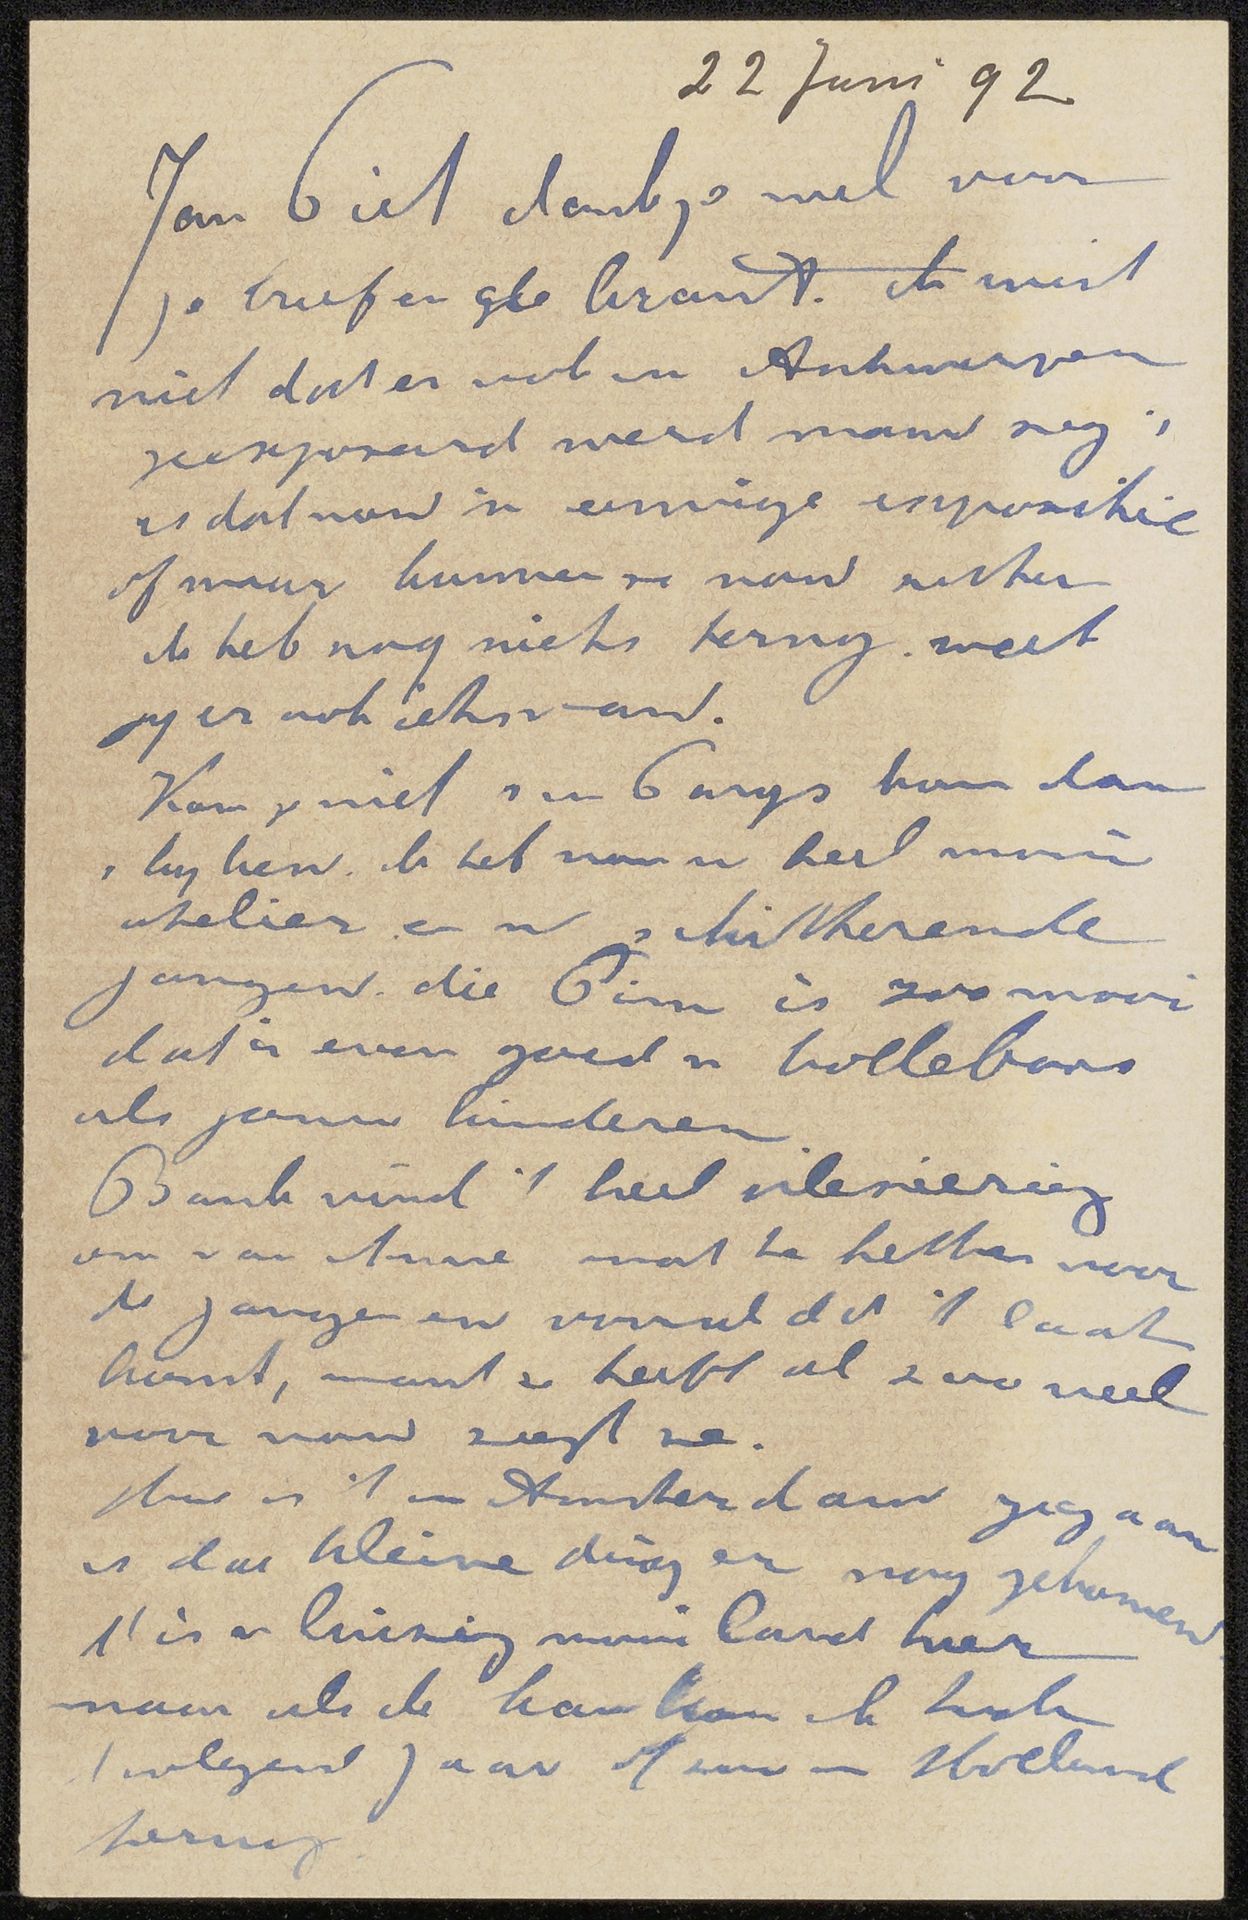 22 Juni 92
Jan Piet dank je wel voor
je brief en de krant. ik wist
niet dat er ook in Antwerpen
geexposeerd werd maar zeg 's
is dat nou 'n eenige expositie
of maar kunnen ze nou zitten
ik heb nog niets terug. weet
jy er ook iets van.
Kom je niet 's in Parys kom dan
's kyken. ik heb nou 'n heel mooi
atelier en 'n schitterende
jongen. die Pim is zoo mooi
dat is even goed 'n bollebaas
als jouw kinderen
Bank vind 't heel plesierig
om van Anne wat te hebben voor
de jongen en vooral dat 't laat
komt, want ze heeft al zoo veel
voor nou zegt ze.
Hoe is 't in Amsterdam gegaan
is dat kleine ding er nog gekomen
't is 'n luizig mooi land hier
maar als ik kan kom ik toch
't volgend jaar of zoo in Holland
terug.